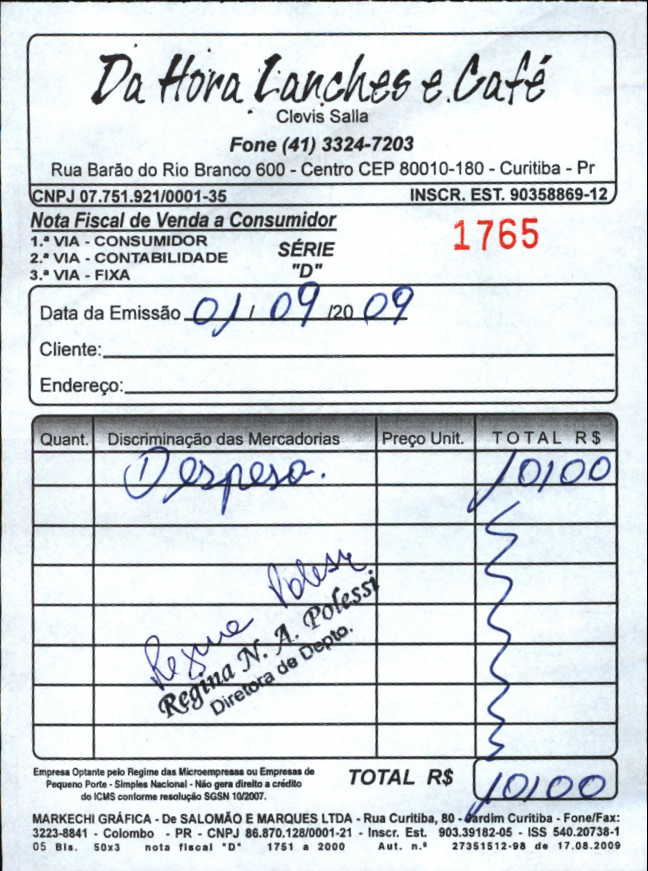 Da Hora Lanches e Café
Clovis Salla
Fone (41) 3324-7203
Rua Barão do Rio Branco 600 - Centro CEP 80010-180 - Curitiba - Pr
CNPJ 07.751.921/0001-35 INSCR. EST. 90358869-12
Nota Fiscal de Venda a Consumidor
1.ª VIA - CONSUMIDOR
2.ª VIA - CONTABILIDADE
3.ª VIA - FIXA
SÉRIE
"D"
1765
Data da Emissão 01/09/2009
Cliente:
Endereço:
Quant. Discriminação das Mercadorias Preço Unit. TOTAL R$
Despesa. 10,00
Regina Polessi
Regina N. A. Polessi
Diretora de Depto.
Empresa Optante pelo Regime das Microempresas ou Empresas de
Pequeno Porte - Simples Nacional - Não gera direito a crédito
do ICMS conforme resolução SGSN 10/2007.
TOTAL R$ 10,00
MARKECHI GRÁFICA - De SALOMÃO E MARQUES LTDA - Rua Curitiba, 80 - Jardim Curitiba - Fone/Fax:
3223-8841 - Colombo - PR - CNPJ 86.870.128/0001-21 - Inscr. Est. 903.39182-05 - ISS 540.20738-1
05 Bls. 50x3 nota fiscal "D" 1751 a 2000 Aut. n.º 27351512-98 de 17.08.2009